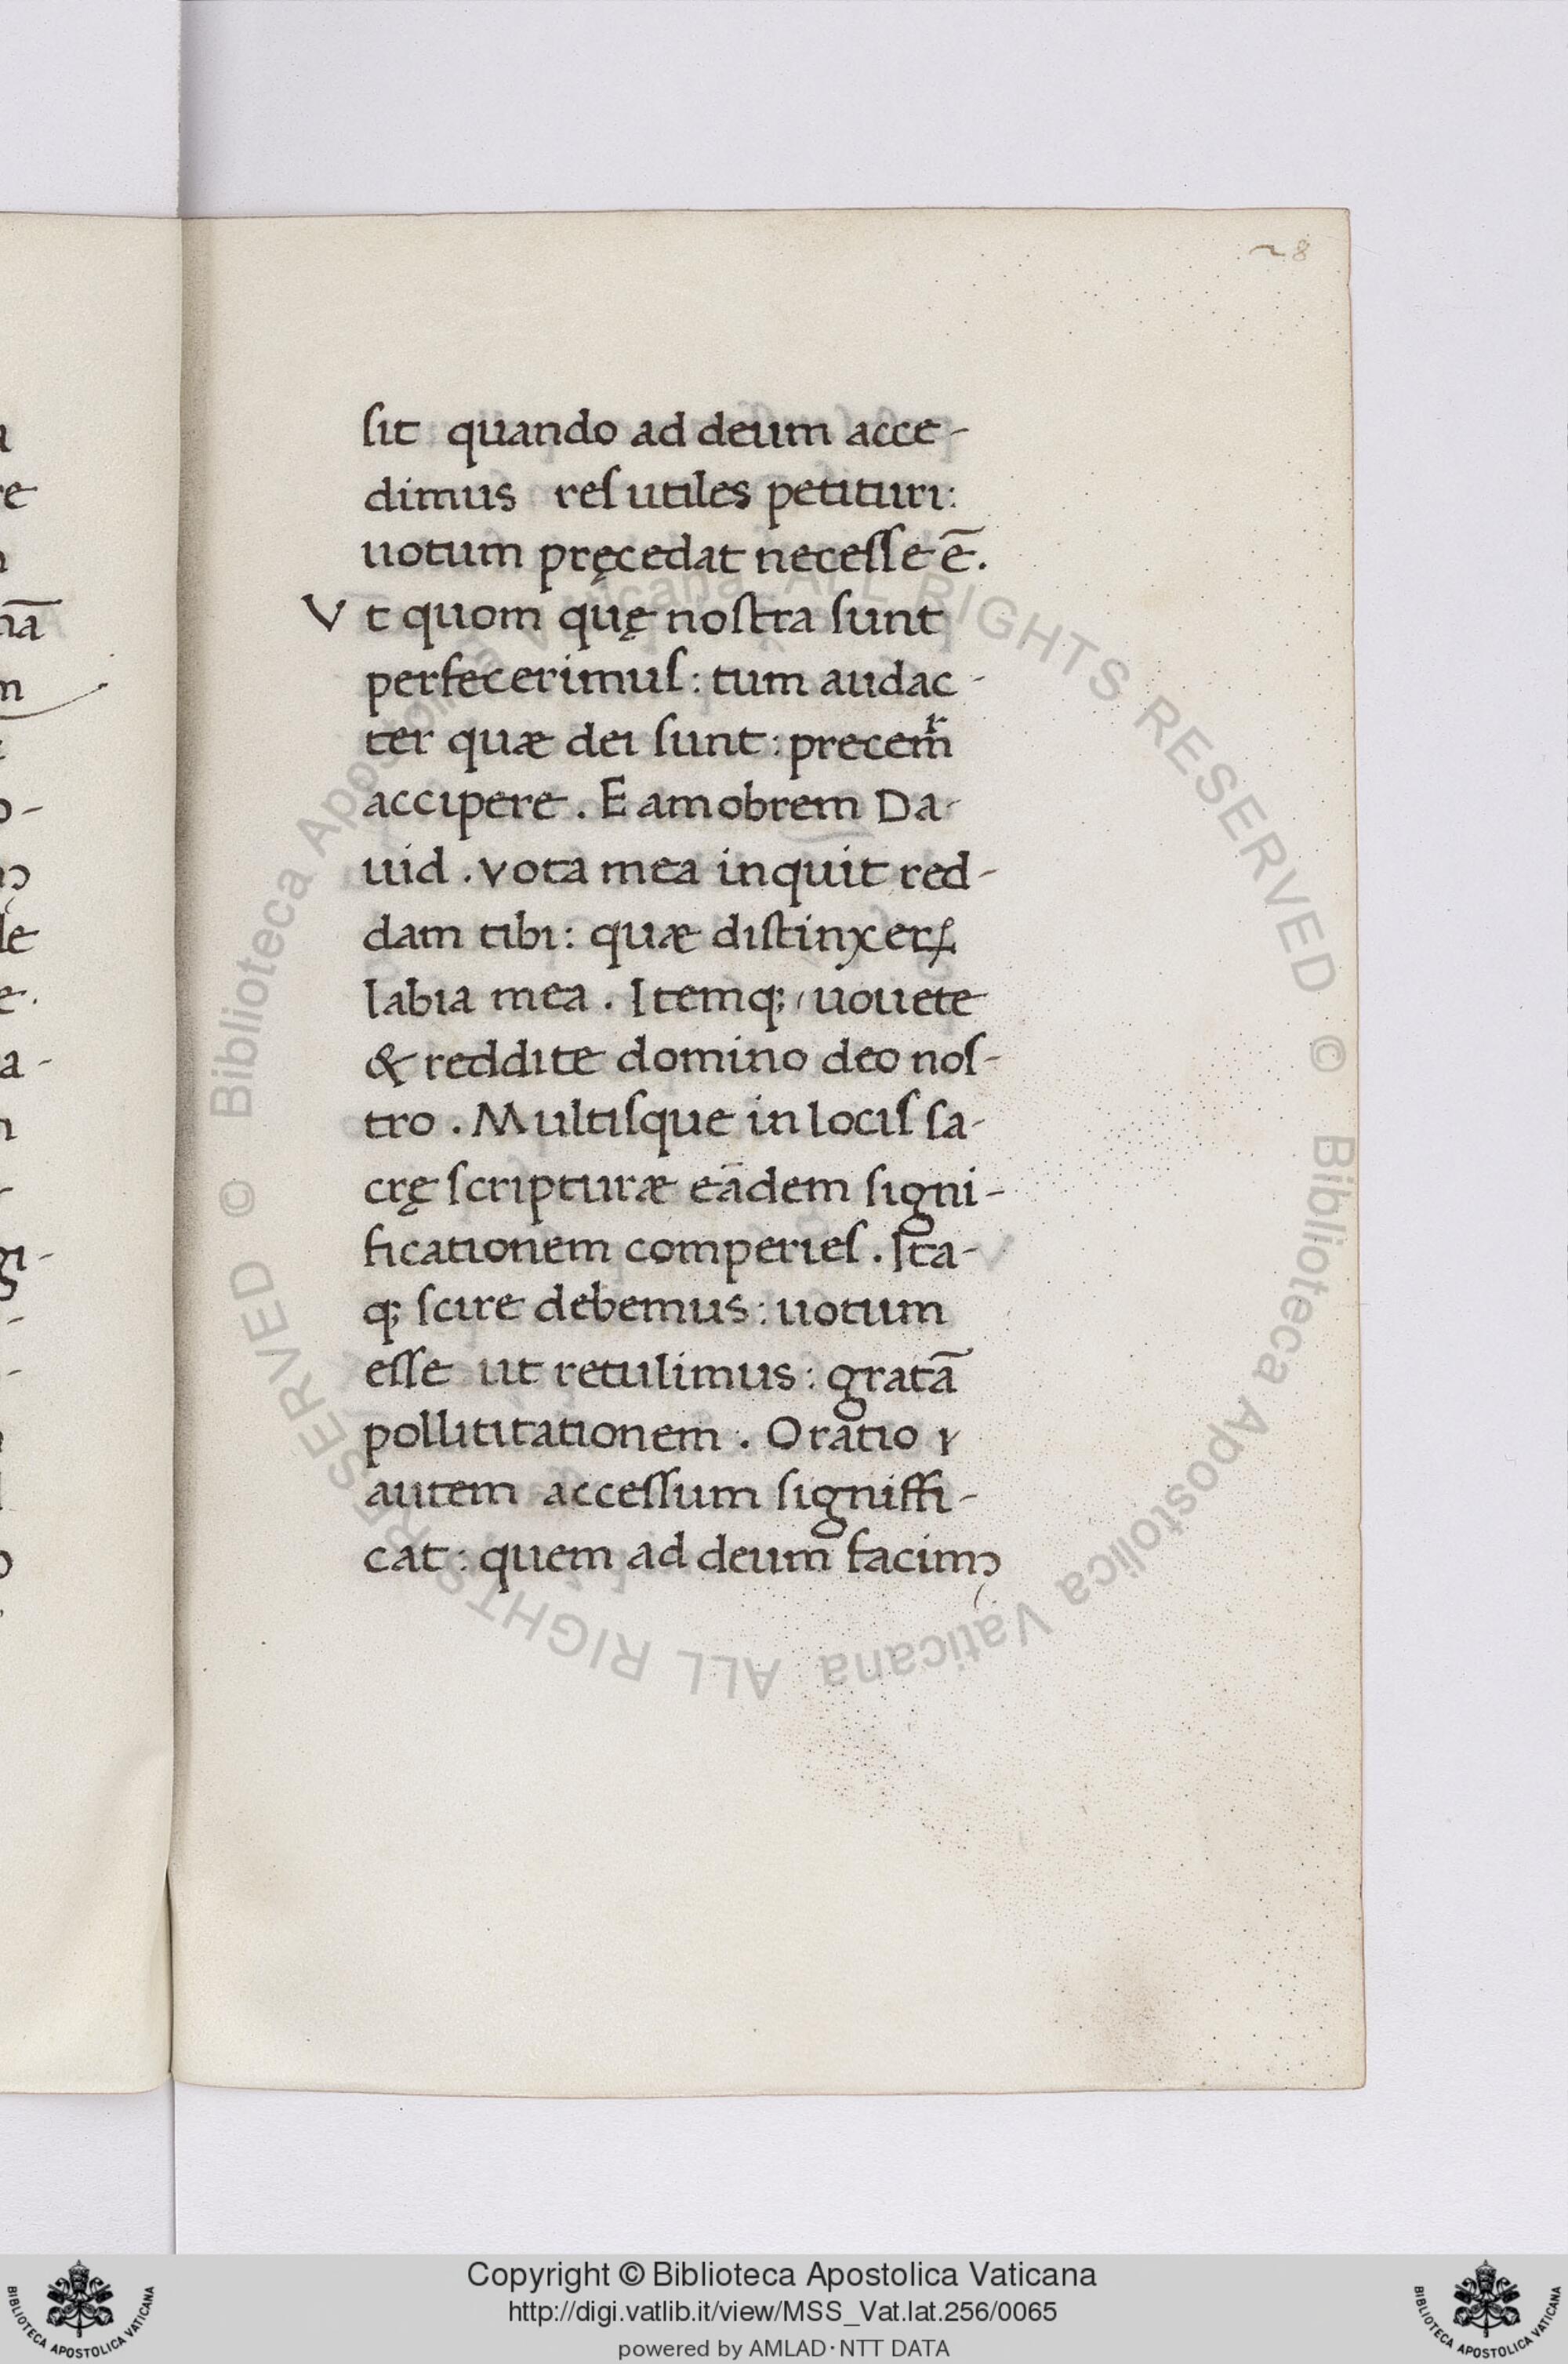 28
ſit quando ad deum acce-
dimus reſ utiles petituri:
uotum pręcedat neceſſe ē.
Vt quom quę noſtra ſunt
perfecerimuſ: tum audac-
ter quæ dei ſunt: precemr̃
accipere. Eamobrem Da-
uid. vota mea inquit red-
dam tibi: quæ diſtinxerꝭ
labia mea. Itemq; uouete
& reddite domino deo noſ-
tro. Multiſque in lociſ ſa-
crę ſcripturæ eādem ſigni-
ficationem comperieſ. Ita-
q; ſcire debemus: uotum
eſſe ut retulimus: gratā
pollititationem. Oratio
autem acceſſum ſigniffi-
cat: quem ad deum facimꝰ
© Biblioteca Apostolica Vaticana ALL RIGHTS RESERVED © Biblioteca Apostolica Vaticana ALL RIGHTS RESERVED
Copyright © Biblioteca Apostolica Vaticana
http://digi.vatlib.it/view/MSS_Vat.lat.256/0065
powered by AMLAD·NTT DATA
BIBLIOTECA APOSTOLICA VATICANA
BIBLIOTECA APOSTOLICA VATICANA